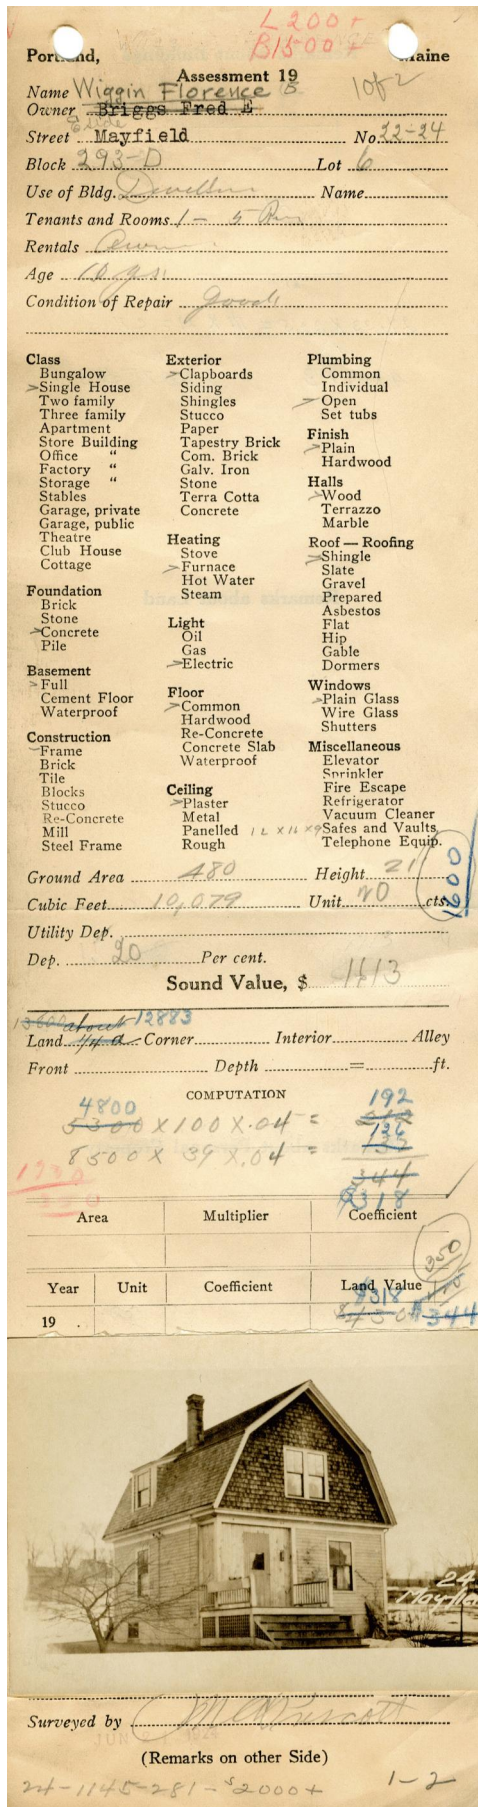 L 200 +
B 1500 +
Portland, Maine
Assessment 19
1 of 2
Name Wiggin Florence B
Owner Briggs Fred E
Street Mayfield No 22-24
Block 293-D Lot 6
Use of Bldg. Dwelling Name
Tenants and Rooms 1 - 5 Rms
Rentals Owner
Age 10 yrs.
Condition of Repair good
Class
Bungalow
>Single House
Two family
Three family
Apartment
Store Building
Office "
Factory "
Storage "
Stables
Garage, private
Garage, public
Theatre
Club House
Cottage
Foundation
Brick
Stone
>Concrete
Pile
Basement
>Full
Cement Floor
Waterproof
Construction
Frame
Brick
Tile
Blocks
Stucco
Re-Concrete
Mill
Steel Frame
Exterior
>Clapboards
Siding
Shingles
Stucco
Paper
Tapestry Brick
Com. Brick
Galv. Iron
Stone
Terra Cotta
Concrete
Heating
Stove
>Furnace
Hot Water
Steam
Light
Oil
Gas
>Electric
Floor
>Common
Hardwood
Re-Concrete
Concrete Slab
Waterproof
Ceiling
>Plaster
Metal
Panelled 12 x 16 x 9
Rough
Plumbing
Common
Individual
>Open
Set tubs
Finish
>Plain
Hardwood
Halls
>Wood
Terrazzo
Marble
Roof — Roofing
>Shingle
Slate
Gravel
Prepared
Asbestos
Flat
Hip
Gable
Dormers
Windows
>Plain Glass
Wire Glass
Shutters
Miscellaneous
Elevator
Sprinkler
Fire Escape
Refrigerator
Vacuum Cleaner
Safes and Vaults
Telephone Equip.
1600
Ground Area 480 Height 21
Cubic Feet 10,079 Unit 20 cts.
Utility Dep.
Dep. 20 Per cent.
Sound Value, $ 1613
13800 about 12883
Land 1/4 a Corner Interior Alley
Front Depth = ft.
COMPUTATION
4800 192
5300 x 100 x .04 = 212
126
8500 x 39 x .04 = 132
344
318
Area Multiplier Coefficient
350
Year Unit Coefficient Land Value
$318
19 . $430 $344
24
Mayfield
Surveyed by
(Remarks on other Side)
24-1145-281-$2000+ 1-2